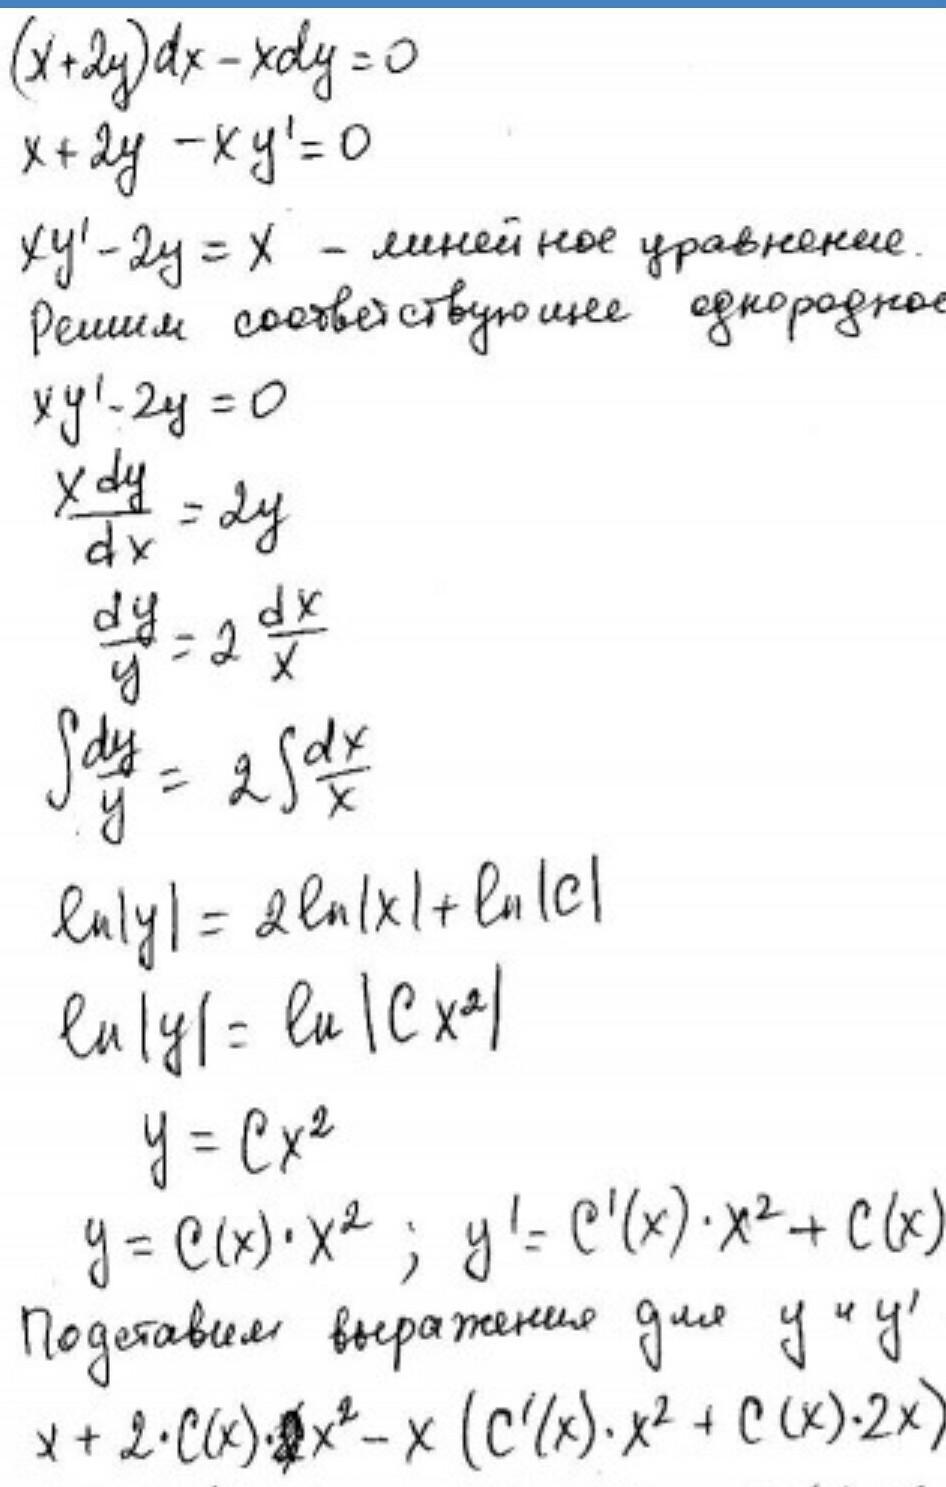 (x+2y)dx - xdy = 0
x+2y - xy' = 0
xy' - 2y = x - линейное уравнение.
Решим соответствующее однородное
xy' - 2y = 0
x dy/dx = 2y
dy/y = 2 dx/x
∫dy/y = 2∫dx/x
ln|y| = 2ln|x| + ln|C|
ln|y| = ln|Cx²|
y = Cx²
y = C(x)·x² ; y' = C'(x)·x² + C(x)
Подставим выражения для y и y'
x + 2·C(x)·x² - x (C'(x)·x² + C(x)·2x)